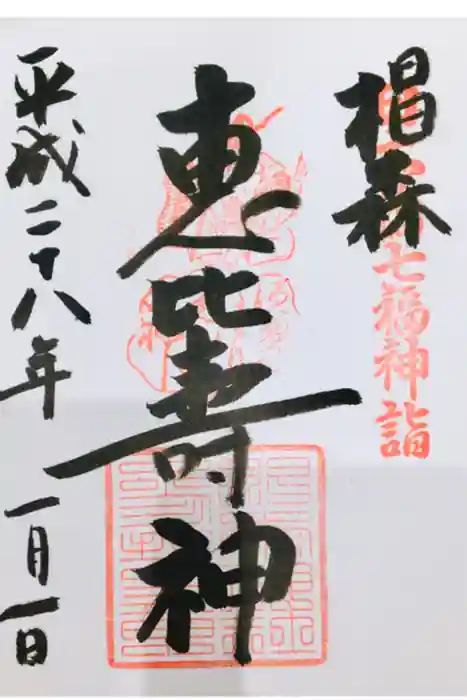 椙森
七福神詣
恵比寿神
平成二十八年
一月一日